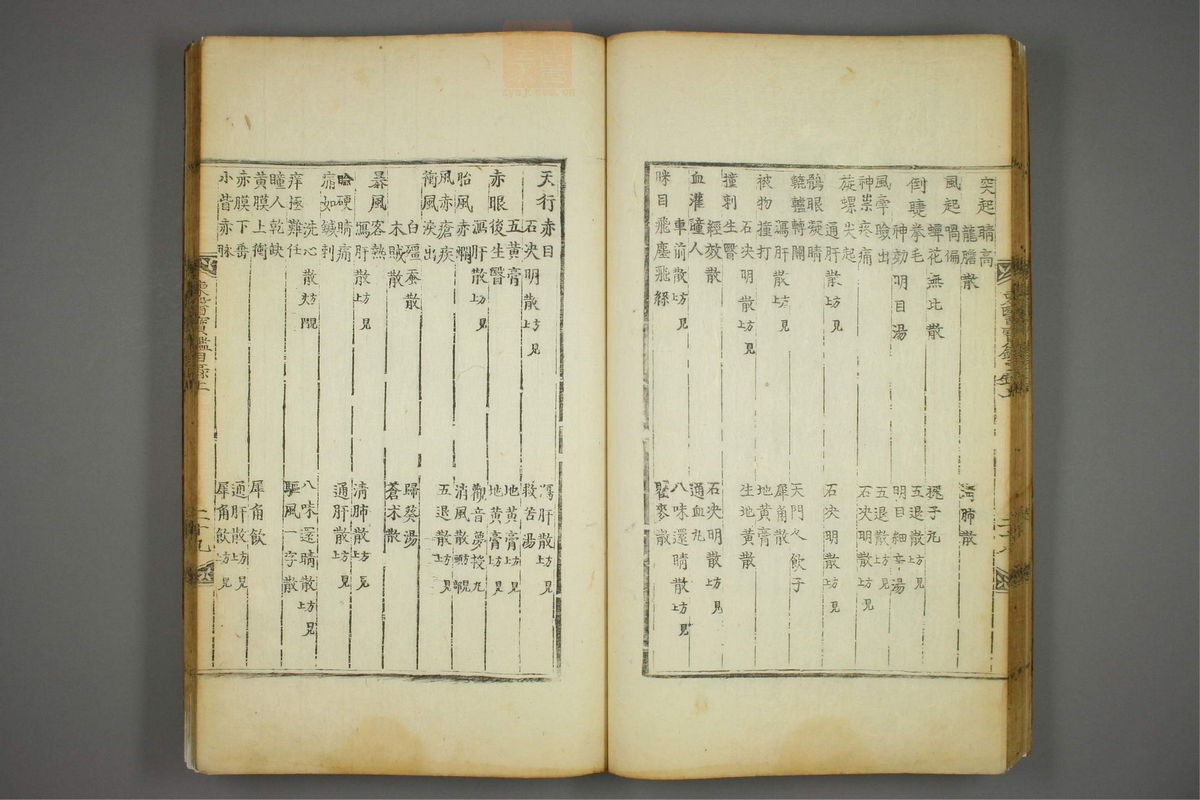 突起睛高
龍膽散 瀉肺散
風起喎偏
蟬花無比散 㧞子丸
倒睫拳毛 五退散見上方
神効明目湯 明目細辛湯
風牽瞼出 五退散見上方
神祟疼痛 石決明散見上方
旋螺尖起
通肝散見上方 石決明散見上方
鶻眼凝睛
轆轤轉關 天門冬飮子
瀉肝散見上方 犀角散
被物撞打 地黃膏
石決明散見上方 生地黃散
撞刺生瞖
經效散 石決明散見上方
血灌瞳人 通血丸
車前散見上方 八味還睛散見上方
眯目飛塵飛絲 瞿麥散
天行赤目 瀉肝散見上方
石決明散見上方 救苦湯
五黃膏 地黃膏見上方
赤眼後生瞖 地黃膏見上方
瀉肝散見上方 觀音夢授丸
胎風赤爛 消風散
風赤瘡疾 五退散見上方
衝風淚出
白殭蚕散 歸葵湯
木賊散 蒼朮散
暴風客熱
瀉肝散見上方 淸肺散見上方
瞼硬睛痛 通肝散見上方
痛如鍼刺
洗心散 八味還睛散見上方
痒極難任 驅風一字散
瞳人乾缺
黃膜上衝 犀角飮
赤膜下垂 通肝散見上方
小眥赤脉 犀角飮見上方
東醫寶鑑目錄上 二十八
東醫寶鑑目錄上 二十九